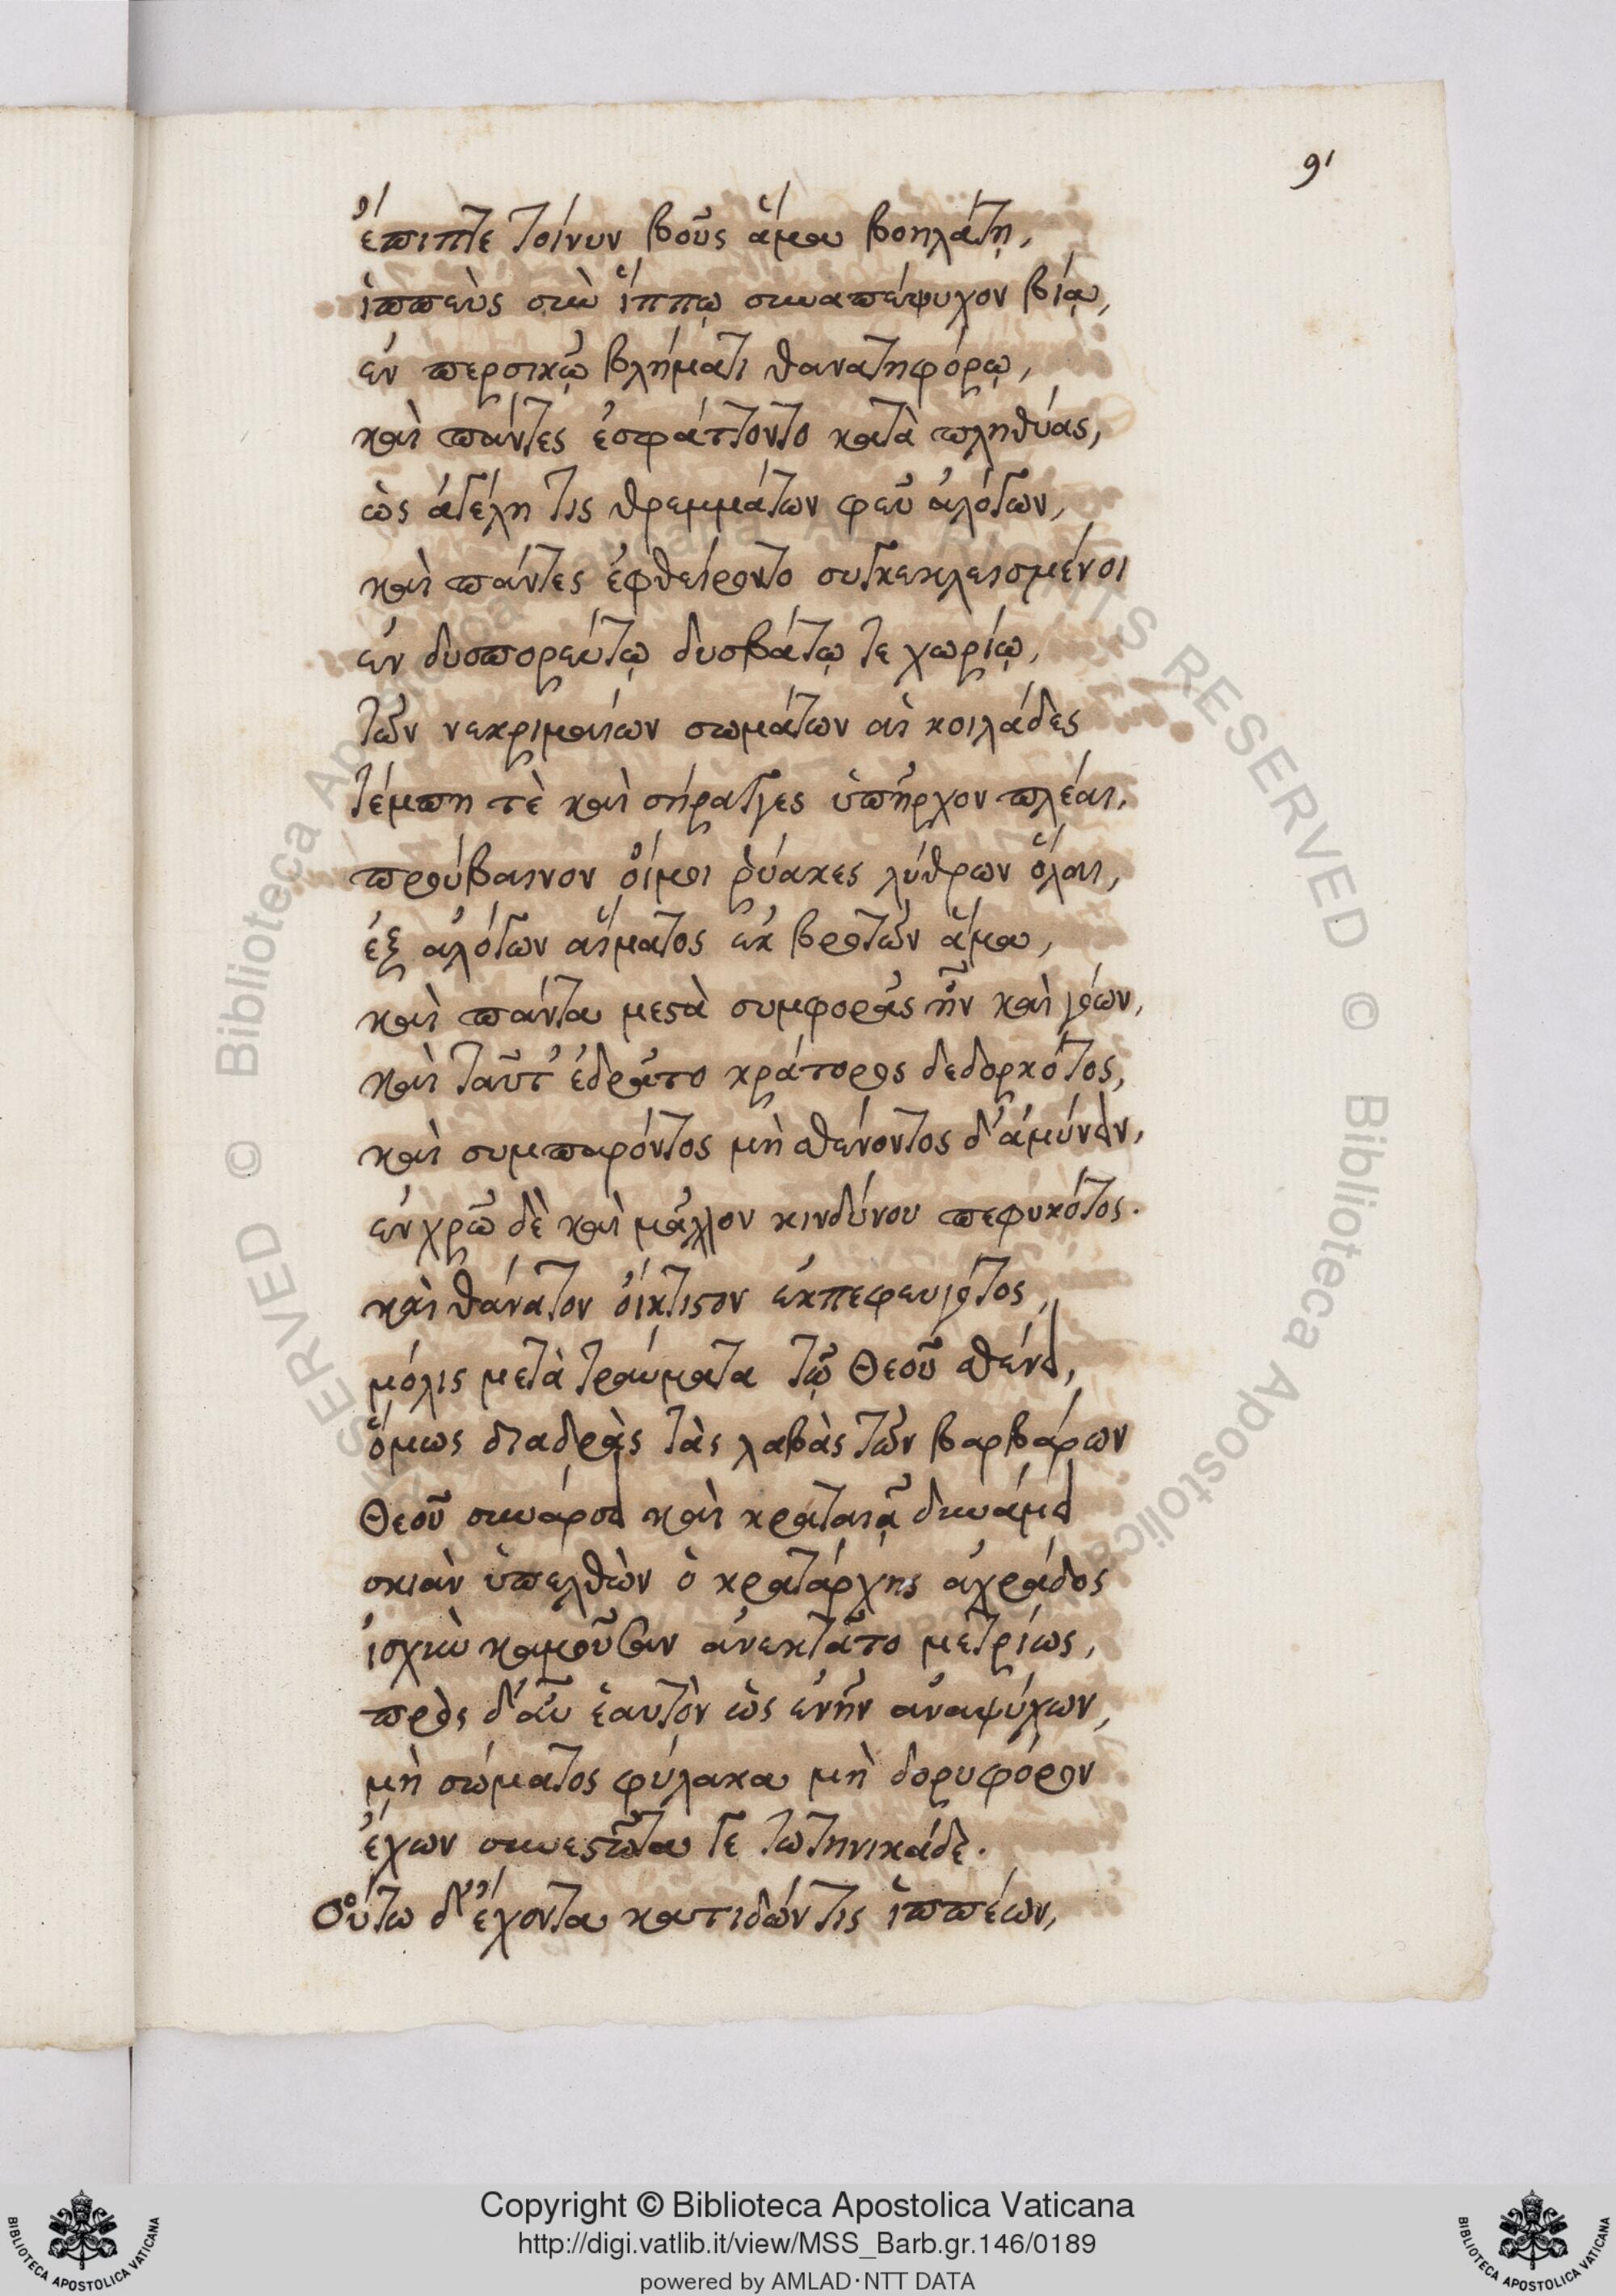 91
ἔπιπτε τοίνυν βοῦς ἅμα βοηλάτῃ,
ἱππεὺς σὺν ἵππῳ συναπέψυχον βίᾳ,
ἐν περσικῷ βλήματι θανατηφόρῳ,
καὶ πάντες ἐσφάττοντο κατὰ πληθύας,
ὡς ἀγέλη τις θρεμμάτων φεῦ ἀλόγων,
καὶ πάντες ἐφθείροντο συγκεκλεισμένοι
ἐν δυσπορεύτῳ δυσβάτῳ τε χωρίῳ,
τῶν νεκριμαίων σωμάτων αἱ κοιλάδες
τέμπη τὲ καὶ σήραγγες ὑπῆρχον πλέαι,
προύβαινον οἴμοι ῥύακες λύθρων ὅλαι,
ἐξ ἀλόγων αἵματος ἐκ βροτῶν ἅμα,
καὶ πάντα μεστὰ συμφορᾶς ἦν καὶ γόων,
καὶ ταῦτ' ἐδρᾶτο κράτορος δεδορκότος,
καὶ συμπαρόντος μὴ σθένοντος δ' ἀμύνειν,
ἐν χρῷ δὲ καὶ μᾶλλον κινδύνου πεφυκότος.
καὶ θάνατον οἴκτιστον ἐκπεφευγότος,
μόλις μετὰ τραύματα τῷ Θεοῦ σθένει,
ὅμως διαδρὰς τὰς λαβὰς τῶν βαρβάρων
Θεοῦ συνάρσει καὶ κραταιᾷ δυνάμει
σκιὰν ὑπελθὼν ὁ κρατάρχης ἀχράδος
ἰσχὺν καμοῦσαν ἀνεκτᾶτο μετρίως,
πρὸς δ' αὖ ἑαυτὸν ὡς ἐνῆν ἀναψύχων,
μὴ σώματος φύλακα μὴ δορυφόρον
ἔχων συνεστῶτα γε τωτηνικάδε.
Οὕτω δ' ἔχοντα κατιδών τις ἱππέων,
Copyright © Biblioteca Apostolica Vaticana
http://digi.vatlib.it/view/MSS_Barb.gr.146/0189
powered by AMLAD·NTT DATA